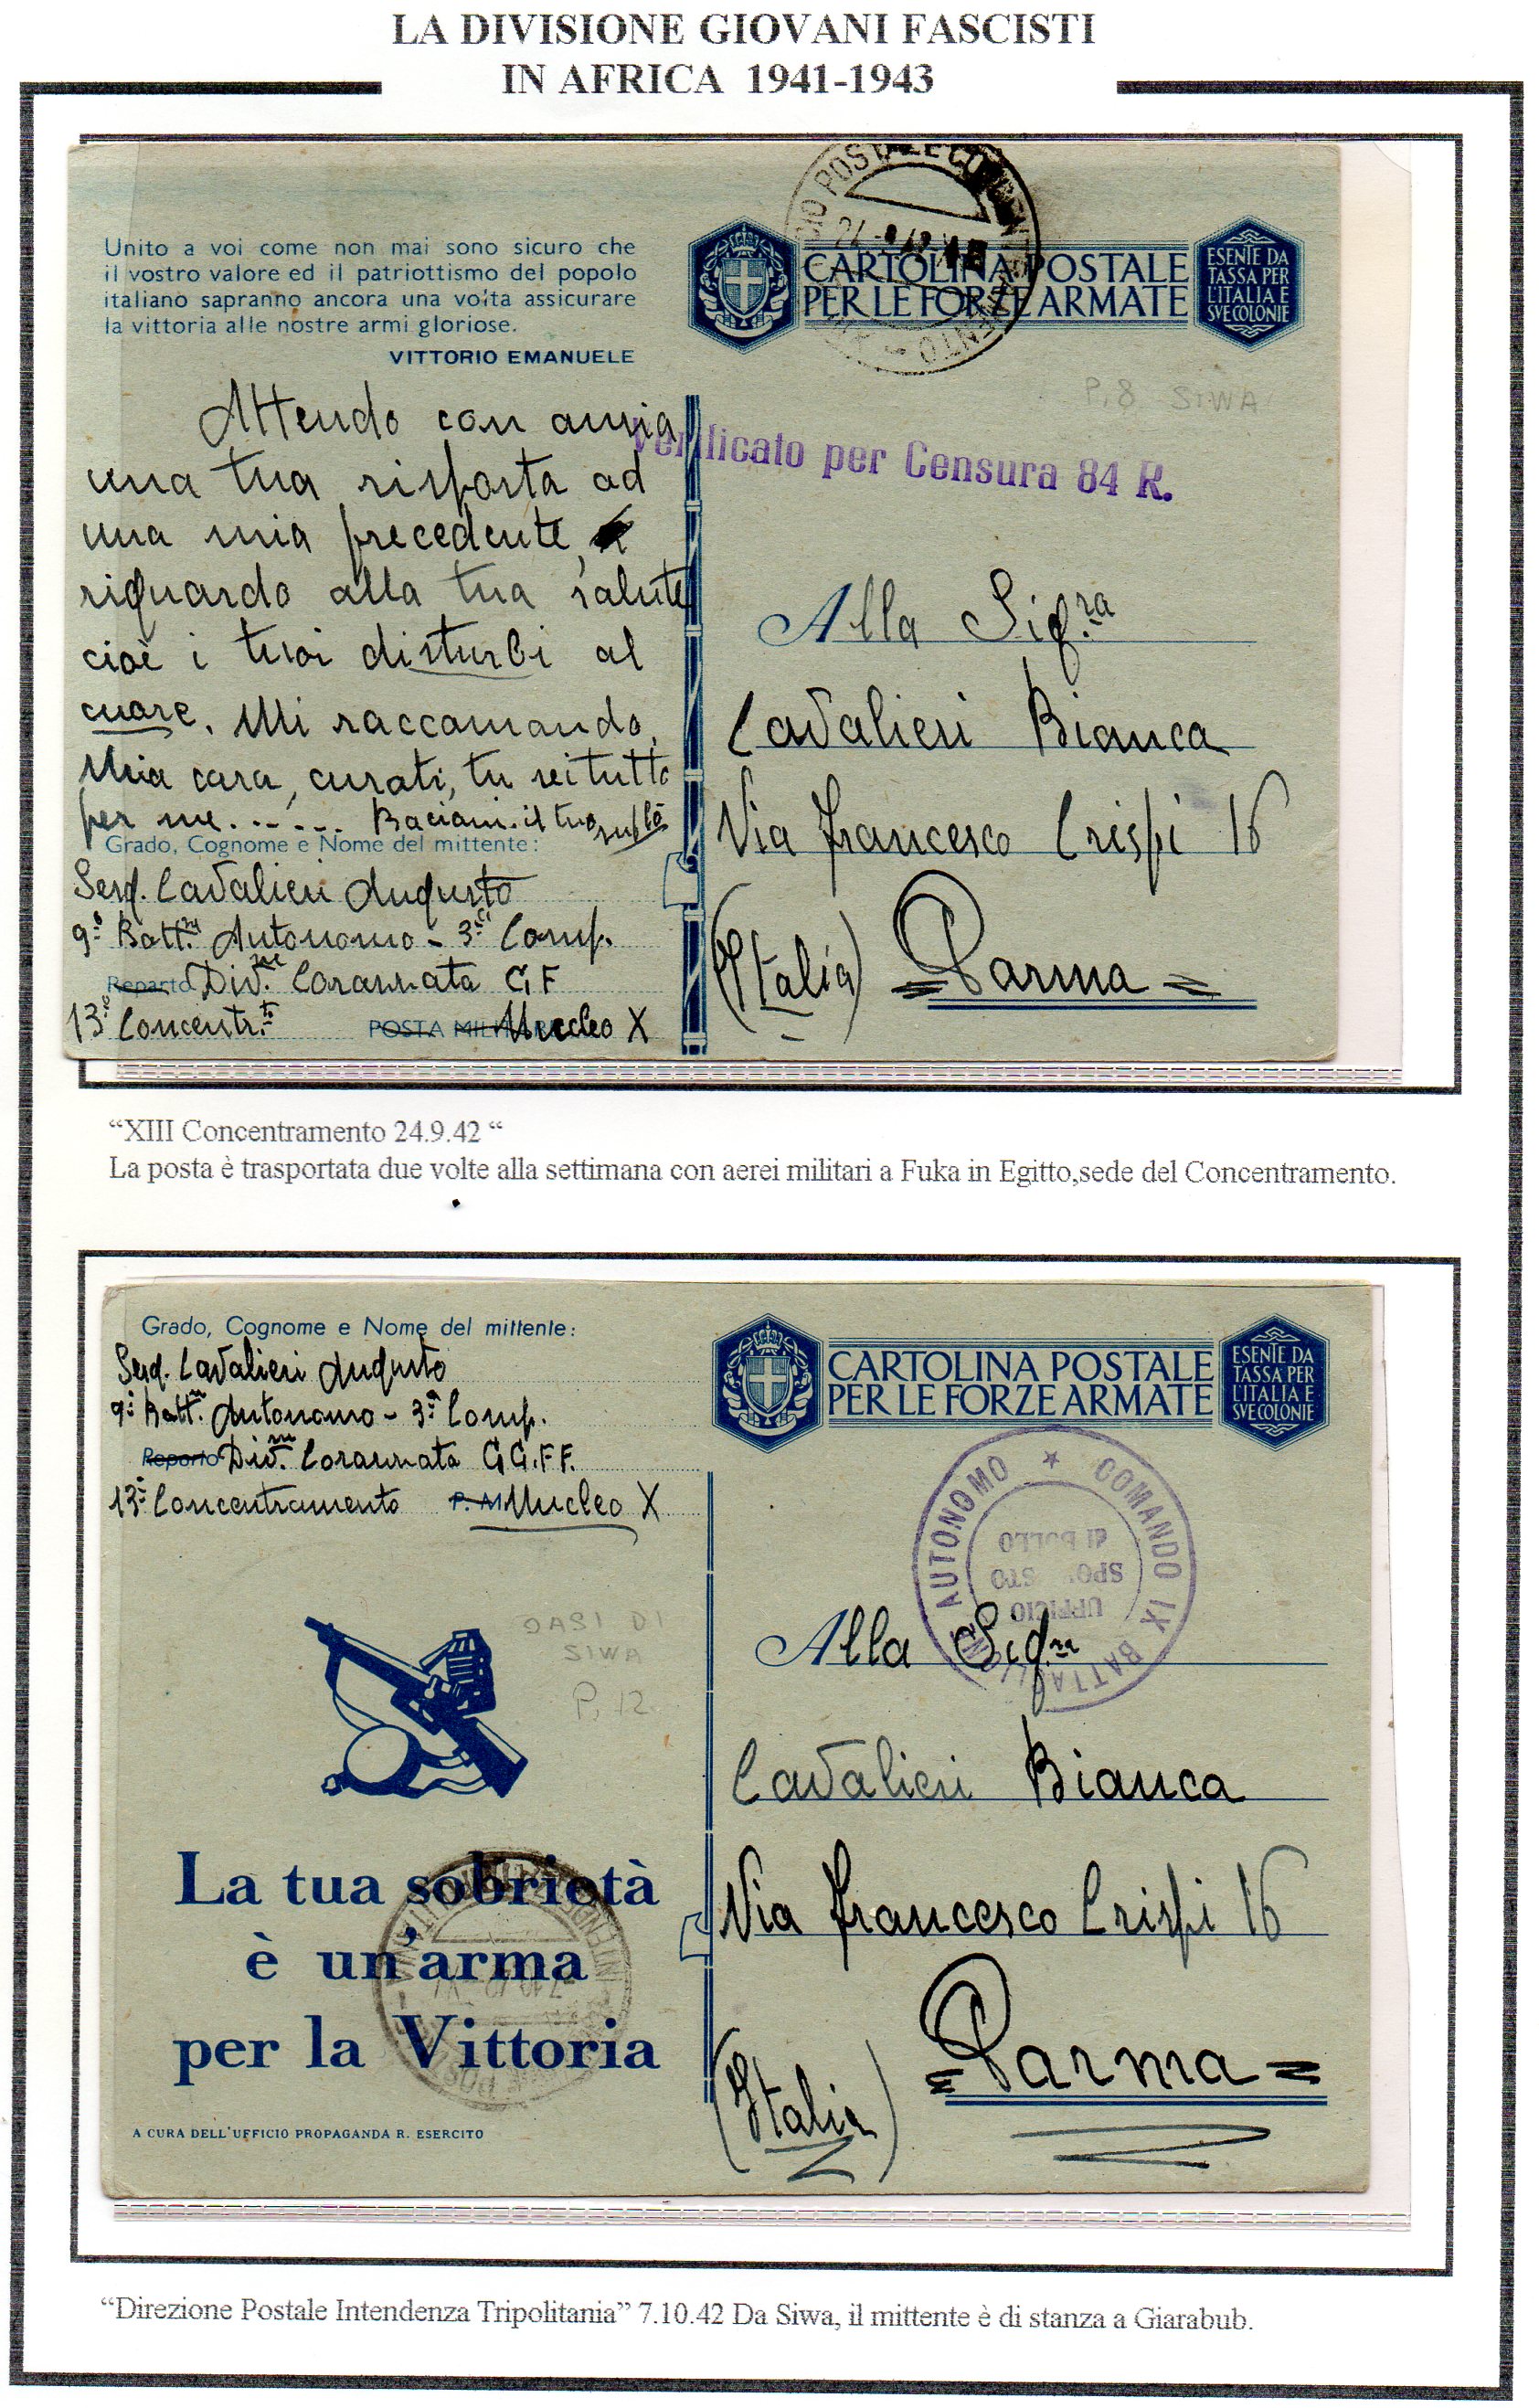 LA DIVISIONE GIOVANI FASCISTI
IN AFRICA 1941-1943
Unito a voi come non mai sono sicuro che
il vostro valore ed il patriottismo del popolo
italiano sapranno ancora una volta assicurare
la vittoria alle nostre armi gloriose.
VITTORIO EMANUELE
Attendo con ansia
una tua risposta ad
una mia precedente,
riguardo alla tua salute
cioè i tuoi disturbi al
cuore. Mi raccomando,
Mia cara, curati, tu sei tutto
per me. Baciami. il tuo
Grado, Cognome e Nome del mittente:
Serg. Cavalieri Augusto
9º Batt. Autonomo - 3ª Comp.
Reparto Div.ne Corazzata G F
13º Concentr.to POSTA Nucleo X
CARTOLINA POSTALE
PER LE FORZE ARMATE
ESENTE DA
TASSA PER
L'ITALIA E
SVE COLONIE
24-9-42
P. 8 SIWA
Verificato per Censura 84 R.
Alla Sig.ra
Cavalieri Bianca
Via Francesco Crispi 16
(Italia) Parma
“XIII Concentramento 24.9.42 “
La posta è trasportata due volte alla settimana con aerei militari a Fuka in Egitto,sede del Concentramento.
Grado, Cognome e Nome del mittente:
Serg. Cavalieri Augusto
9º Batt. Autonomo - 3ª Comp.
Reparto Div.ne Corazzata GG.FF.
13º Concentramento P. M. Nucleo X
OASI DI
SIWA
P. 12
La tua sobrietà
è un'arma
per la Vittoria
A CURA DELL'UFFICIO PROPAGANDA R. ESERCITO
CARTOLINA POSTALE
PER LE FORZE ARMATE
ESENTE DA
TASSA PER
L'ITALIA E
SVE COLONIE
COMANDO IX BATTAGLIONE AUTONOMO
UFFICIO
Alla Sig.ra
Cavalieri Bianca
Via Francesco Crispi 16
(Italia) Parma
“Direzione Postale Intendenza Tripolitania” 7.10.42 Da Siwa, il mittente è di stanza a Giarabub.